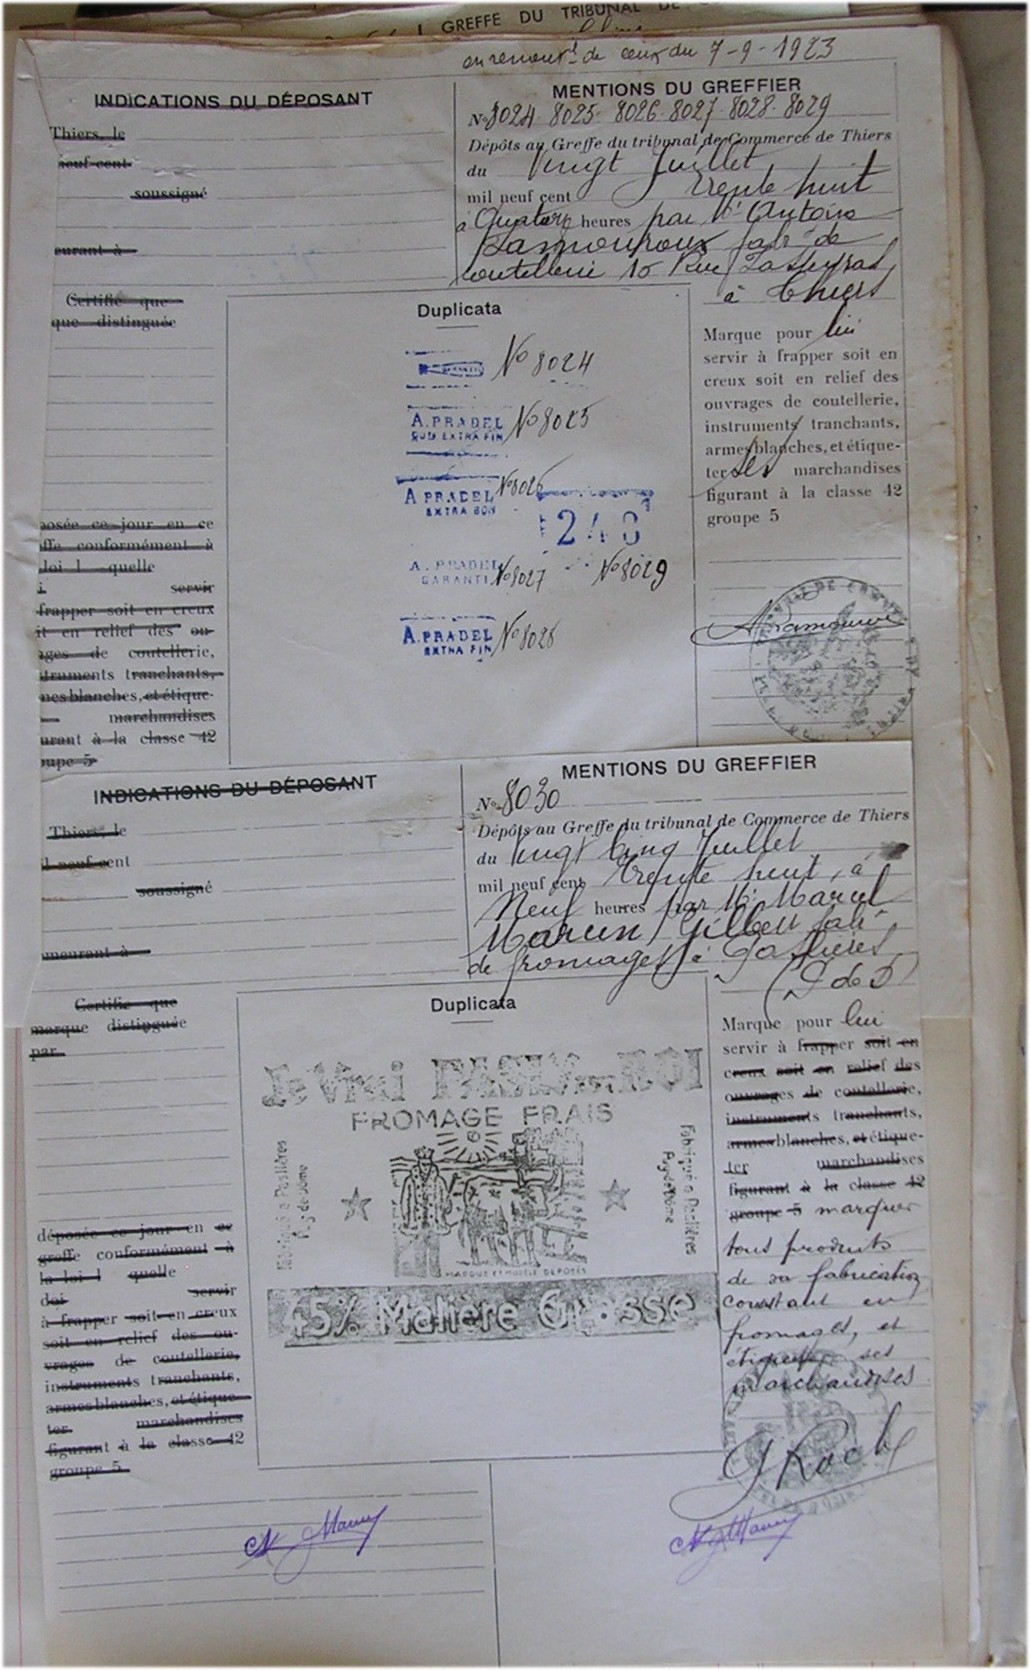 GREFFE DU TRIBUNAL DE
en renouvt de ceux du 7-9-1923
INDICATIONS DU DÉPOSANT
Thiers, le
neuf cent
soussigné
eurant à
Certifié que
que distinguée
posée ce jour en ce
ffe conformément à
loi l quelle
servir
frapper soit en creux
it en relief des ou-
ages de coutellerie,
truments tranchants,
mes blanches, et étique-
marchandises
urant à la classe 42
upe 5
MENTIONS DU GREFFIER
No 8024 8025 8026 8027 8028 8029
Dépôts au Greffe du tribunal de Commerce de Thiers
du Vingt Juillet
mil neuf cent trente huit
à Quatorze heures par Mr Antoine
Lamouroux fabt de
coutellerie 10 Rue
à Thiers
Duplicata
GARANTI No 8024
A. PRADEL No 8025
QUIS EXTRA FIN
A PRADEL No 8026
EXTRA BON
240
A. PRADEL
GARANTI No 8027 No 8029
A. PRADEL No 8028
EXTRA FIN
Marque pour lui
servir à frapper soit en
creux soit en relief des
ouvrages de coutellerie,
instruments tranchants,
armes blanches, et étique-
ter ses marchandises
figurant à la classe 42
groupe 5
ALamouroux
INDICATIONS DU DÉPOSANT
Thiers, le
il neuf cent
soussigné
meurant à
Certifie que
marque distinguée
par
déposée ce jour en ce
greffe conformément à
la loi l quelle
doi servir
à frapper soit en creux
soit en relief des ou-
vrages de coutellerie,
instruments tranchants,
armes blanches, et étique-
ter marchandises
figurant à la classe 42
groupe 5
MENTIONS DU GREFFIER
No 8030
Dépôts au Greffe du tribunal de Commerce de Thiers
du Vingt Cinq Juillet
mil neuf cent trente huit, à
Neuf heures par Mr Marcel
Gilbert fabt
de fromages à Paslières
(P de D)
Duplicata
Le Vrai PASLY des ROI
FROMAGE FRAIS
Fabriqué à Paslières
Puy de Dôme
Fabriqué à Paslières
Puy de Dôme
MARQUE ET MODÈLE DÉPOSÉS
45% Matière Grasse
Marque pour lui
servir à frapper soit en
creux soit en relief des
ouvrages de coutellerie,
instruments tranchants,
armes blanches, et étique-
ter marchandises
figurant à la classe 42
groupe 5 marquer
tous produits
de sa fabrication
consistant en
fromages, et
étiqueter ses
marchandises